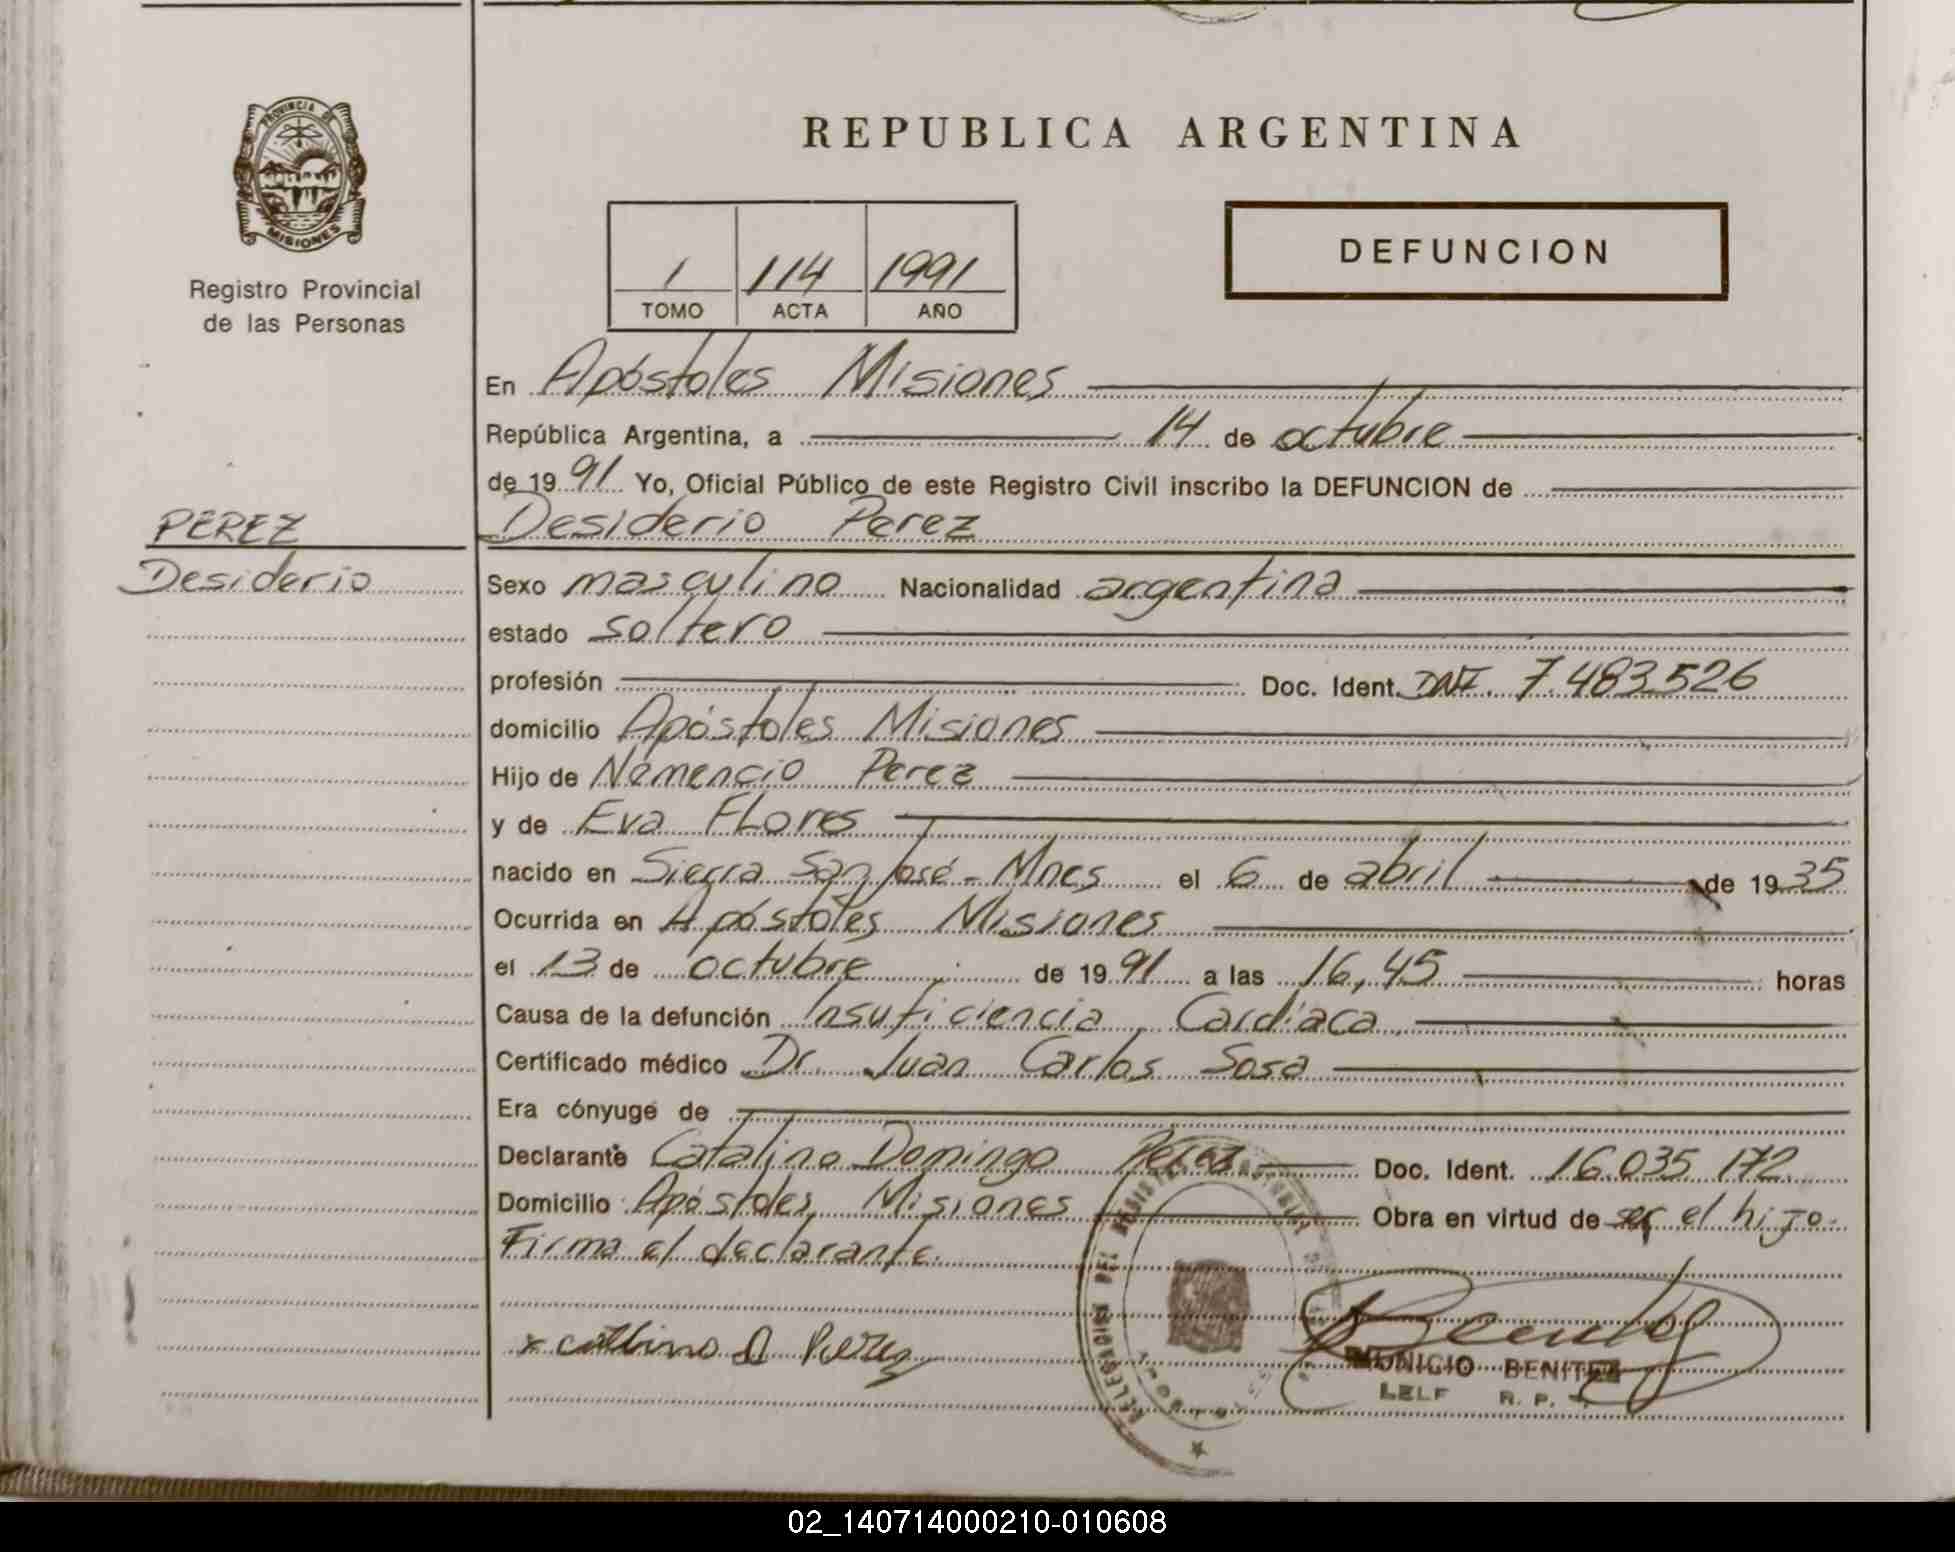 PROVINCIA DE
MISIONES
Registro Provincial
de las Personas
REPUBLICA ARGENTINA
1 114 1991
TOMO ACTA AÑO
DEFUNCION
En Apóstoles Misiones
República Argentina, a 14 de octubre
de 1991 Yo, Oficial Público de este Registro Civil inscribo la DEFUNCION de
PEREZ
Desiderio Perez
Desiderio
Sexo masculino Nacionalidad argentina
estado soltero
profesión Doc. Ident. DNI 7.483.526
domicilio Apóstoles Misiones
Hijo de Nemencio Perez
y de Eva Flores
nacido en Sierra San José - Mnes el 6 de abril de 1935
Ocurrida en Apóstoles Misiones
el 13 de octubre de 1991 a las 16,45 horas
Causa de la defunción Insuficiencia Cardíaca
Certificado médico Dr. Juan Carlos Sosa
Era cónyuge de
Declarante Catalino Domingo Perez Doc. Ident. 16.035.172
Domicilio Apóstoles Misiones Obra en virtud de ser el hijo.
Firma el declarante.
x Catalino D Perez
BENITEZ
R. P.
02_140714000210-010608